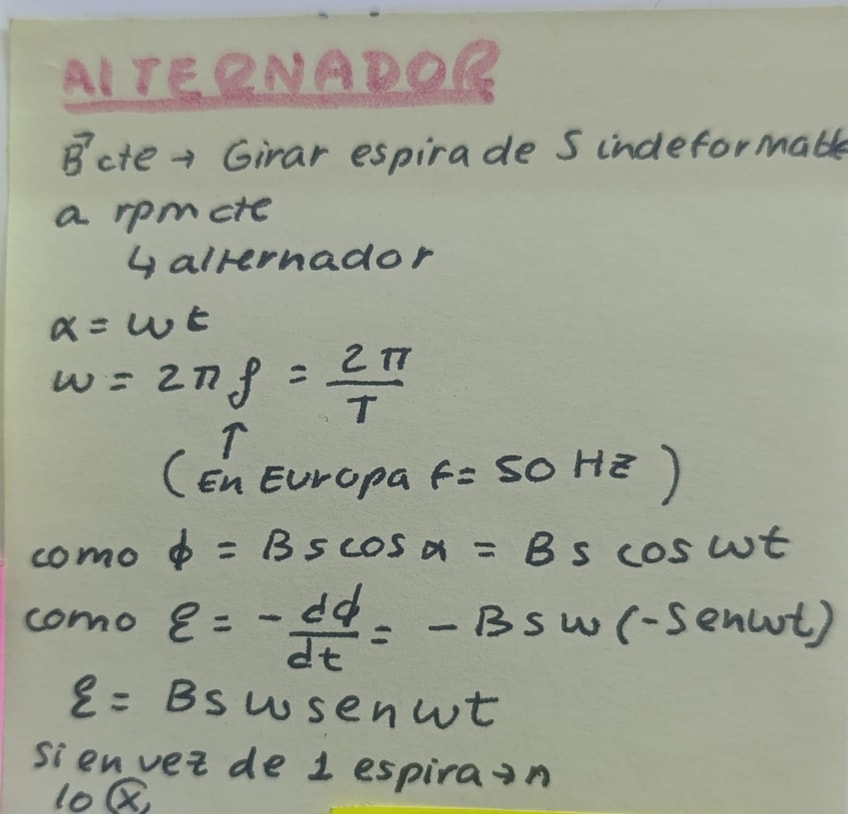 ALTERNADOR
B⃗ cte → Girar espira de S indeformable
a rpm cte
↳ alternador
α = ωt
ω = 2π f = 2π/T
↑
(En Europa f = 50 Hz)
como ϕ = B s cos α = B s cos ωt
como ℰ = - dϕ/dt = - B s ω (-sen ωt)
ℰ = B s ω sen ωt
si en vez de 1 espira → n
lo ⓧ